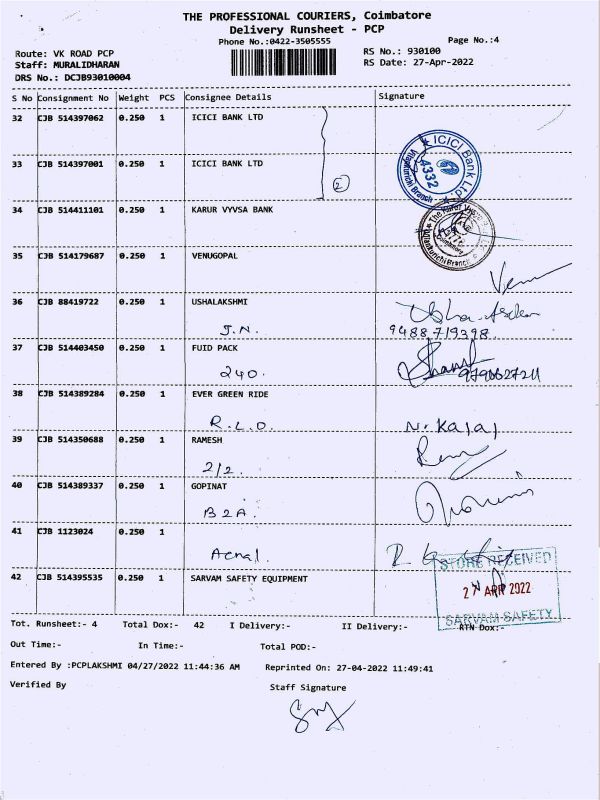 THE PROFESSIONAL COURIERS, Coimbatore
Delivery Runsheet - PCP
Phone No.:0422-3505555
Page No.:4
Route: VK ROAD PCP
RS No.: 930100
Staff: MURALIDHARAN
RS Date: 27-Apr-2022
DRS No.: DCJB93010004
S No Consignment No Weight PCS Consignee Details Signature
32 CJB 514397062 0.250 1 ICICI BANK LTD
33 CJB 514397001 0.250 1 ICICI BANK LTD
2
ICICI Bank Ltd
4332
Vilankurichi Branch
34 CJB 514411101 0.250 1 KARUR VYVSA BANK
35 CJB 514179687 0.250 1 VENUGOPAL
36 CJB 88419722 0.250 1 USHALAKSHMI
J.N.
9488719398
37 CJB 514403450 0.250 1 FUID PACK
240.
38 CJB 514389284 0.250 1 EVER GREEN RIDE
R.L.O.
39 CJB 514350688 0.250 1 RAMESH
2/2.
40 CJB 514389337 0.250 1 GOPINAT
B2A.
41 CJB 1123024 0.250 1
STORE RECEIVED
42 CJB 514395535 0.250 1 SARVAM SAFETY EQUIPMENT
27 APR 2022
SARVAM SAFETY
Tot. Runsheet:- 4 Total Dox:- 42 I Delivery:- II Delivery:- RTN Dox:-
Out Time:- In Time:- Total POD:-
Entered By :PCPLAKSHMI 04/27/2022 11:44:36 AM Reprinted On: 27-04-2022 11:49:41
Verified By Staff Signature